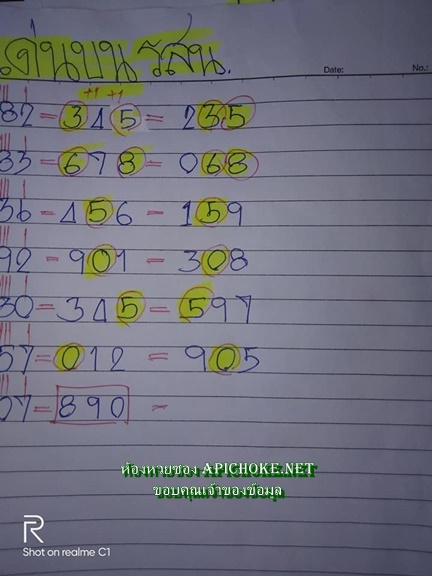 เด่นบน รสน.
Date: No.:
+1 +1
82 = 345 = 235
83 = 678 = 068
36 = 456 = 159
92 = 901 = 308
30 = 345 = 597
57 = 012 = 905
07 = 890 =
ห้องหวยซอง APICHOKE.NET
ขอบคุณเจ้าของข้อมูล
R
Shot on realme C1